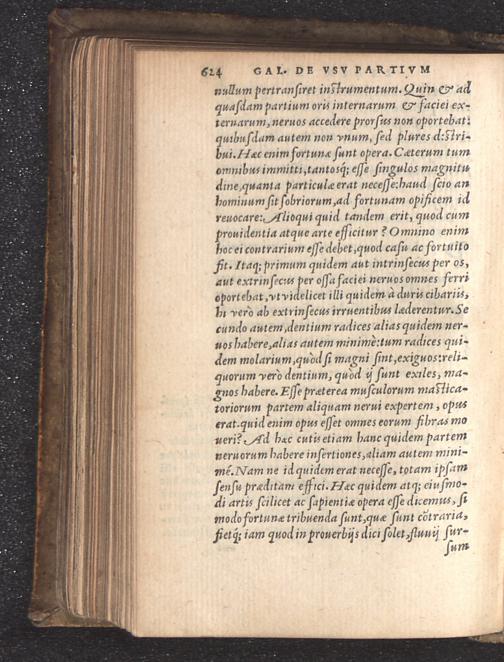 624 GAL. DE VSV PARTIVM
nullum pertransiret instrumentum. Quin & ad
quasdam partium oris internarum & faciei ex-
ternarum, neruos accedere prorsus non oportebat:
quibusdam autem non vnum, sed plures distri-
bui. Hæc enim fortunæ sunt opera. Cæterum tum
omnibus immitti, tantosq; esse singulos magnitu
dine, quanta particulæ erat necesse: haud scio an
hominum sit sobriorum, ad fortunam opificem id
reuocare. Alioqui quid tandem erit, quod cum
prouidentia atque arte efficitur? Omnino enim
hoc ei contrarium esse debet, quod casu ac fortuito
fit. Itaq; primum quidem aut intrinsecus per os,
aut extrinsecus per ossa faciei neruos omnes ferri
oportebat, vt videlicet illi quidem à duris cibariis,
hi verò ab extrinsecus irruentibus læderentur. Se
cundo autem, dentium radices alias quidem ner-
uos habere, alias autem minimè: tum radices qui-
dem molarium, quòd si magni sint, exiguos: reli-
quorum verò dentium, quòd ij sunt exiles, ma-
gnos habere. Esse præterea musculorum mastica-
toriorum partem aliquam nerui expertem, opus
erat. quid enim opus esset omnes eorum fibras mo
ueri? Ad hæc cutis etiam hanc quidem partem
neruorum habere insertiones, aliam autem mini-
mé. Nam ne id quidem erat necesse, totam ipsam
sensu præditam effici. Hæc quidem atq; eiusmo-
di artis scilicet ac sapientiæ opera esse dicemus, si
modo fortunæ tribuenda sunt, quæ sunt cōtraria,
fietq; iam quod in prouerbijs dici solet, fluuij sur-
sum